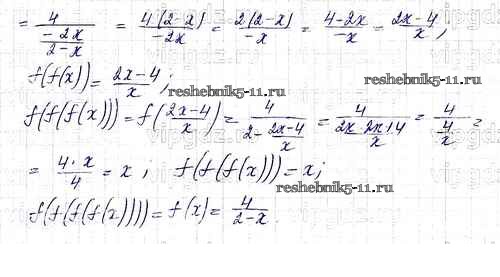 = 4/(-2x/(2-x)) = 4(2-x)/-2x = 2(2-x)/-x = 4-2x/-x = 2x-4/x ,
f(f(x)) = 2x-4/x ; reshebnik5-11.ru
f(f(f(x))) = f(2x-4/x) = 4/(2-(2x-4)/x) = 4/((2x-2x+4)/x) = 4/(4/x) =
= 4·x/4 = x ; f(f(f(x))) = x;
reshebnik5-11.ru
f(f(f(f(x)))) = f(x) = 4/(2-x).
reshebnik5-11.ru